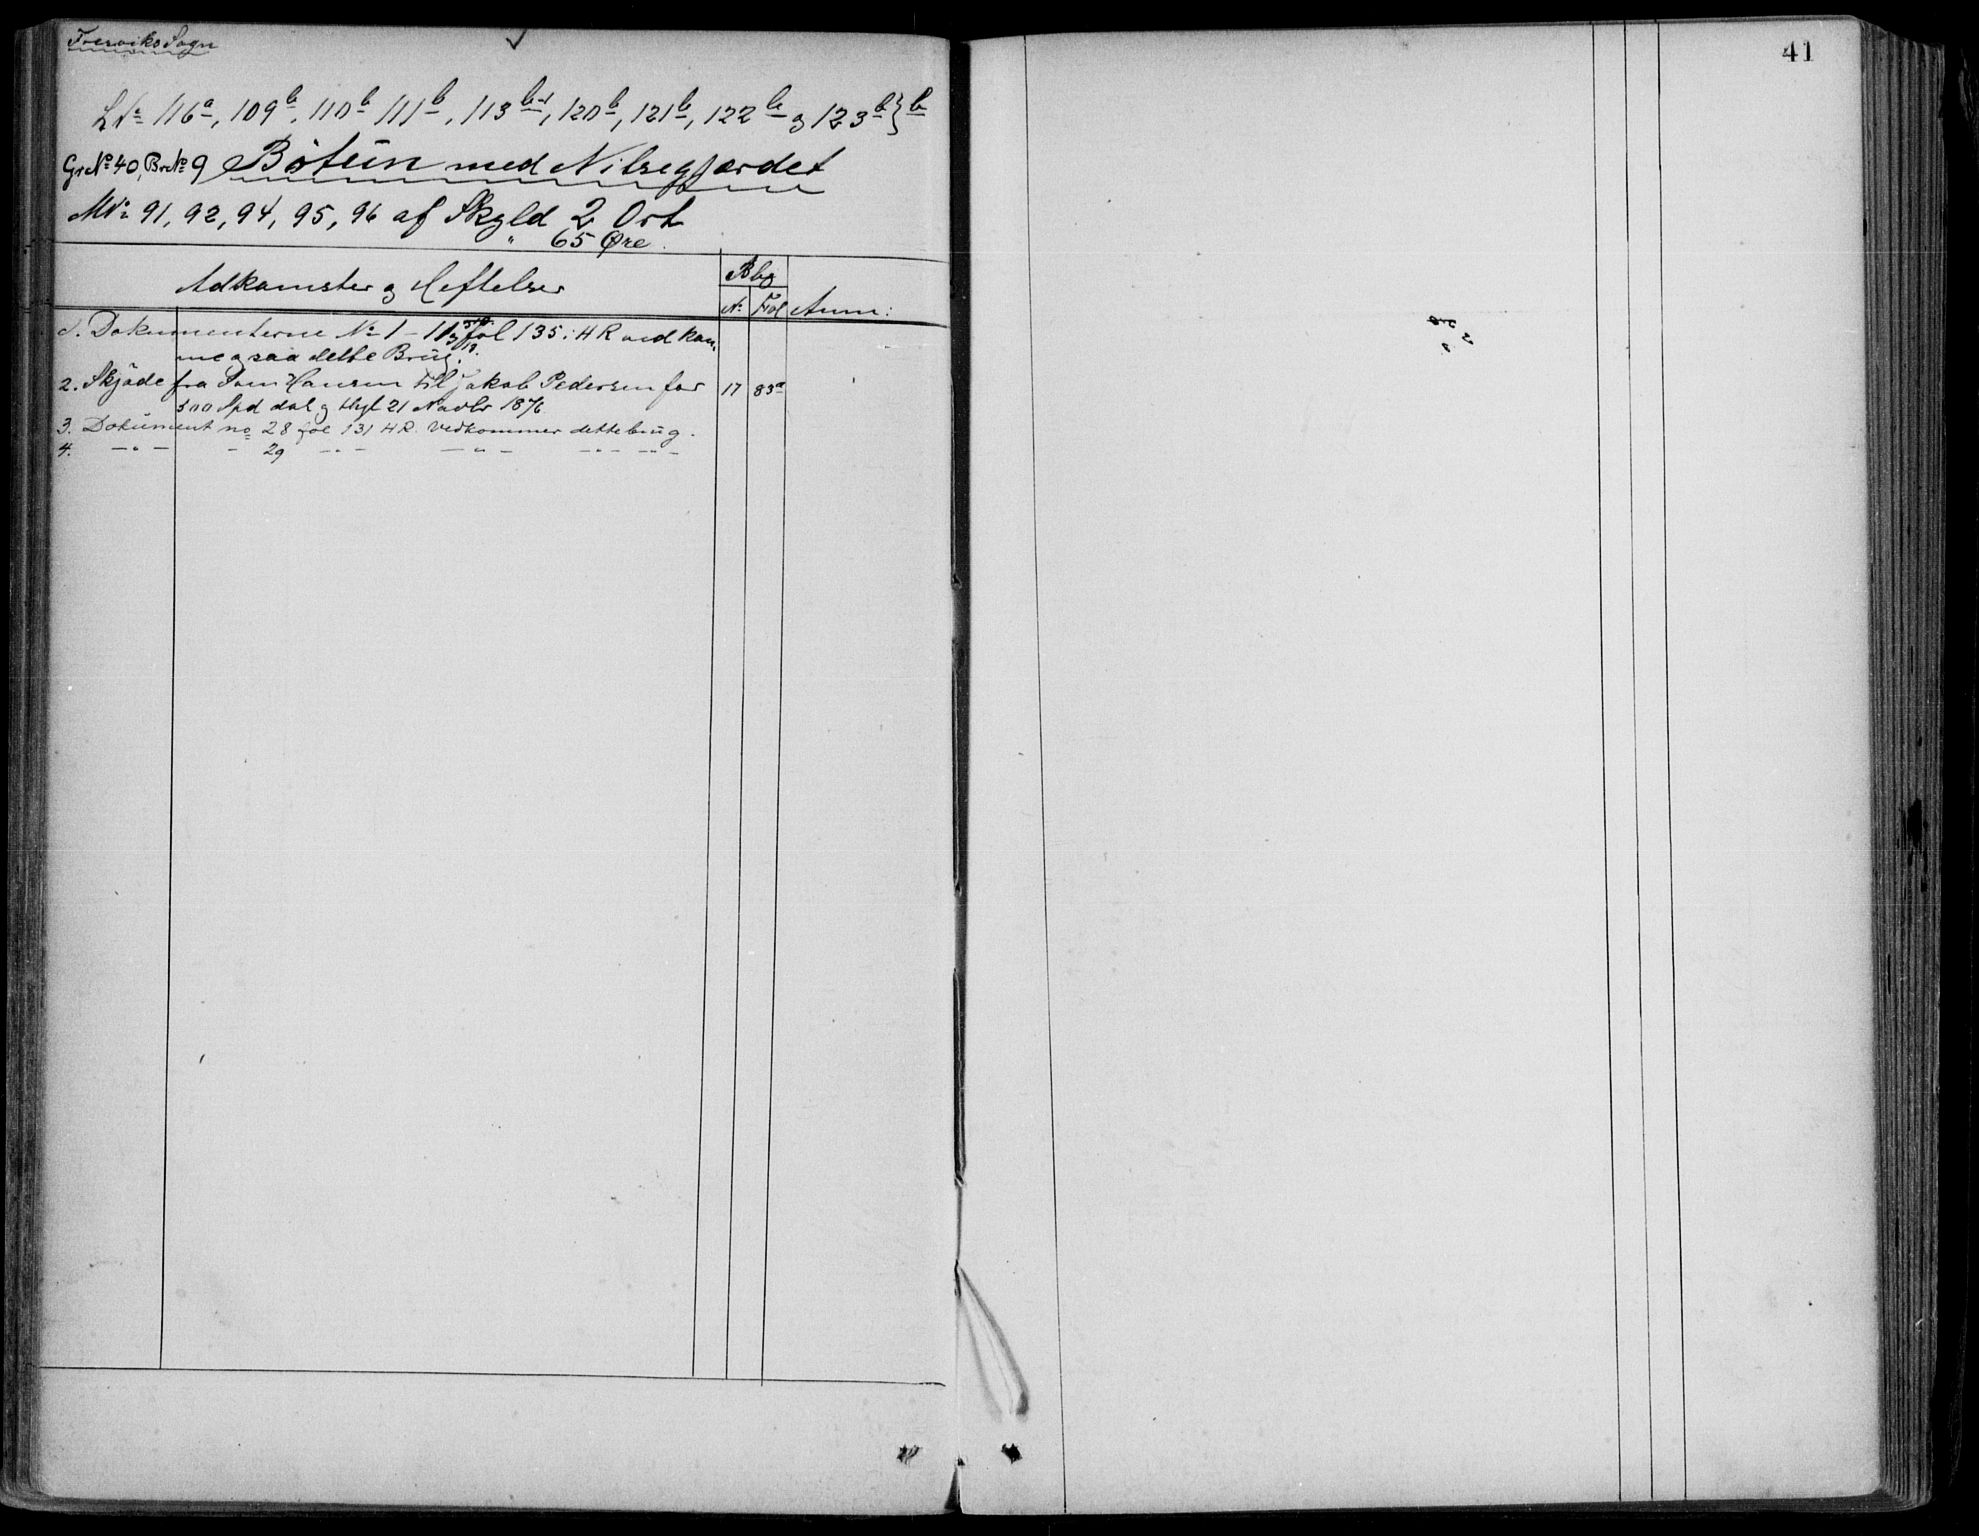 Foresviks Sogn
LNo 116a, 109b, 110b 111b, 113b-1, 120b, 121b, 122b og 123b}b
GrNo 40, BrNo 9 Bøtun med Nilsegjærdet
MNo 91, 92, 94, 95, 96 af Skyld 2 Ort
" 65 Øre.
Adkomster og Heftelser
Pbg
No Fol Anm:
1. Dokumenterne No 1 - 11 fol 135 i HR vedkom
me ogsaa dette Brug.
2. Skjøde fra Hansen til Jakob Pedersen for 17 83a
500 Spd dat og thgl 21 Novbr 1876
3. Dokument no 28 fol 131 HR. vedkommer dette brug.
4. - " - - 29 - " - - " - - " - - " -
41